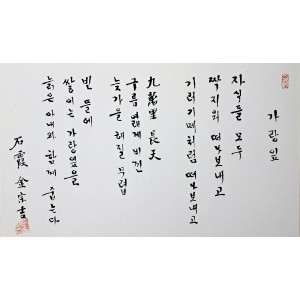 가랑잎
자식들 모두
짝지워 떠나보내고
기러기떼처럼 떠나보내고
九萬里 長天
구름 엷게 비낀
늦가을 해질 무렵
빈 뜰에
쌓이는 가랑잎을
늙은 아내와 함께 줍는다
石霞 金宗書